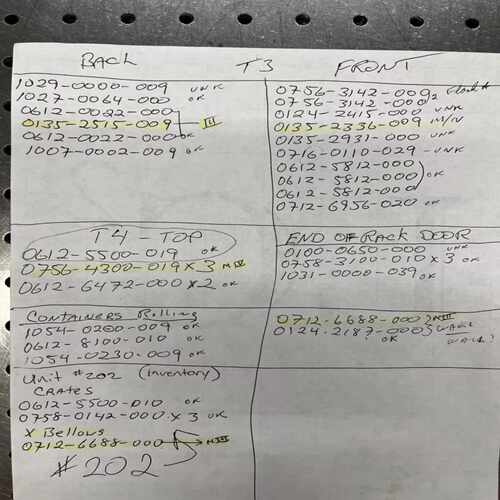 BACK
T3
FRONT
1029-0000-009 UNK
1027-0064-000 OK
0612-0022-000
0135-2515-009
0612-0022-000 OK
1007-0002-009 OK
0756-3142-000
0756-3142-000
0124-2415-000 UNK
0135-2336-009
0135-2931-000 UNK
0716-0110-029 - UNK
0612-5812-000
0612-5812-000 OK
0612-5812-000
0712-6956-020 OK
T4 - TOP
0612-5500-019 OK
0756-4300-019 X 3
0612-6472-000 X 2 OK
END OF RACK DOOR
0100-0650-000 UNK
0758-3100-010 X 3 OK
1031-0000-039 OK
CONTAINERS Rolling
1054-0200-009 OK
0612-8100-010 OK
1054-0230-009 OK
0712-6688-000
0124-2187-000
OK
Unit #202 (Inventory)
CRATES
0612-5500-010 OK
0758-0142-000 X 3 UNK
X Bellows
0712-6688-000
#202